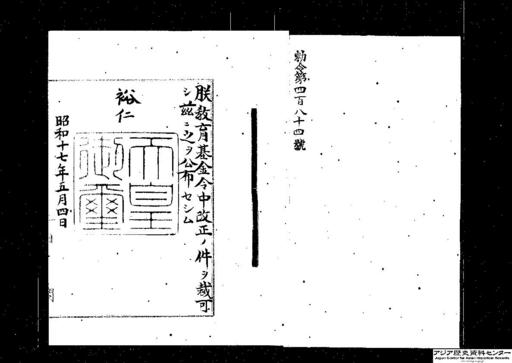 勅令第四百八十四號
朕教育基金令中改正ノ件ヲ裁可
シ茲ニ之ヲ公布セシム
裕仁
天皇
御璽
昭和十七年五月四日
アジア歴史資料センター
Japan Center for Asian Historical Records